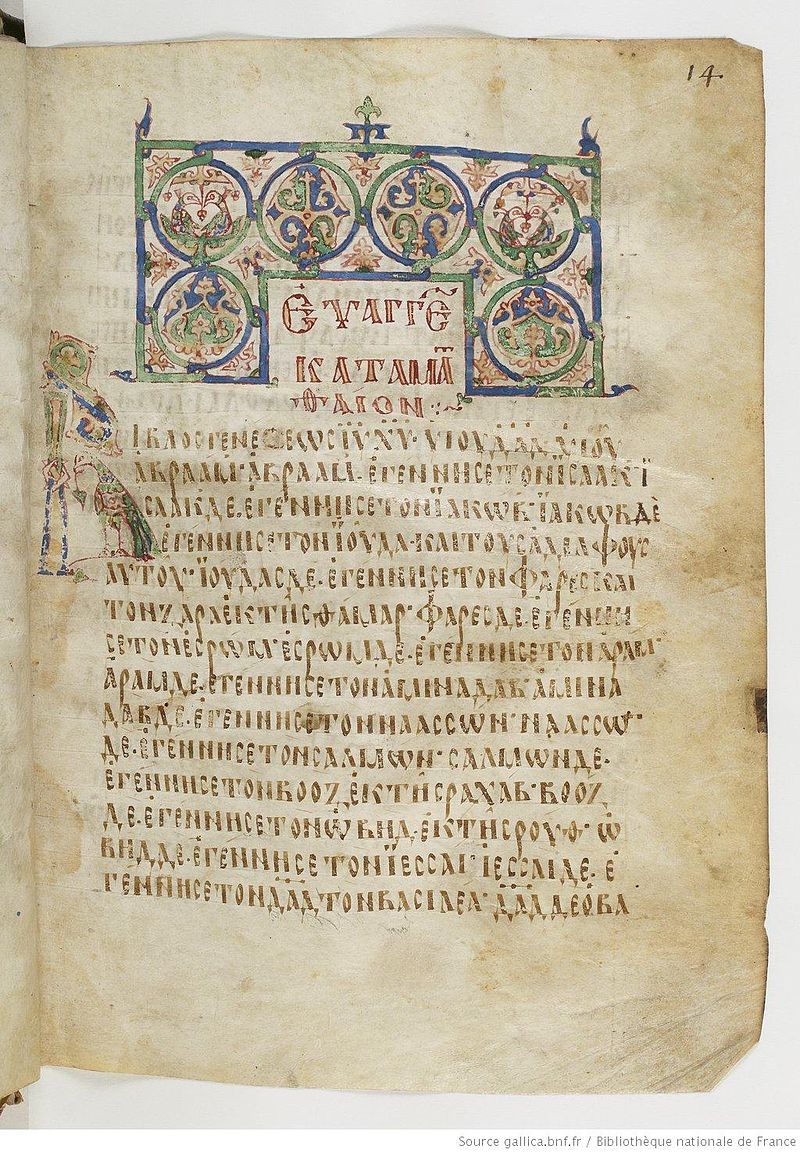 14.
ΕΥΑΓΓΕ̄
ΚΑΤΑ ΜᾹ
ΘΑΙΟΝ
ΒΙΒΛΟΣ ΓΕΝΕΣΕΩΣ ΙΥ ΧΥ· ΥΙΟΥ ΔΑΔ ΥΙΟΥ
ΑΒΡΑΑΜ· ΑΒΡΑΑΜ· ΕΓΕΝΝΗΣΕ ΤΟΝ ΙΣΑΑΚ· Ϊ
ΣΑΑΚ ΔΕ· ΕΓΕΝΝΗΣΕ ΤΟΝ ΙΑΚΩΒ· ΙΑΚΩΒ ΔΕ
ΕΓΕΝΝΗΣΕ ΤΟΝ ΙΟΥΔΑ· ΚΑΙ ΤΟΥΣ ΑΔΕΛΦΟΥΣ
ΑΥΤΟΥ· ΙΟΥΔΑΣ ΔΕ· ΕΓΕΝΝΗΣΕ ΤΟΝ ΦΑΡΕΣ ΚΑΙ
ΤΟΝ ΖΑΡΑ ΕΚ ΤΗΣ ΘΑΜΑΡ· ΦΑΡΕΣ ΔΕ· ΕΓΕΝΝΗ
ΣΕ ΤΟΝ ΕΣΡΩΜ· ΕΣΡΩΜ ΔΕ· ΕΓΕΝΝΗΣΕ ΤΟΝ ΑΡΑΜ·
ΑΡΑΜ ΔΕ· ΕΓΕΝΝΗΣΕ ΤΟΝ ΑΜΙΝΑΔΑΒ· ΑΜΙΝΑ
ΔΑΒ ΔΕ· ΕΓΕΝΝΗΣΕ ΤΟΝ ΝΑΑΣΣΩΝ· ΝΑΑΣΣΩ̄·
ΔΕ· ΕΓΕΝΝΗΣΕ ΤΟΝ ΣΑΛΜΩΝ· ΣΑΛΜΩΝ ΔΕ·
ΕΓΕΝΝΗΣΕ ΤΟΝ ΒΟΟΖ ΕΚ ΤΗΣ ΡΑΧΑΒ· ΒΟΟΖ
ΔΕ· ΕΓΕΝΝΗΣΕ ΤΟΝ ΩΒΗΔ· ΕΚ ΤΗΣ ΡΟΥΘ· Ω
ΒΗΔ ΔΕ· ΕΓΕΝΝΗΣΕ ΤΟΝ ΙΕΣΣΑΙ· ΙΕΣΣΑΙ ΔΕ· Ε
ΓΕΝΝΗΣΕ ΤΟΝ ΔΑΔ ΤΟΝ ΒΑΣΙΛΕΑ· ΔΑΔ ΔΕ Ο ΒΑ
Source gallica.bnf.fr / Bibliothèque nationale de France